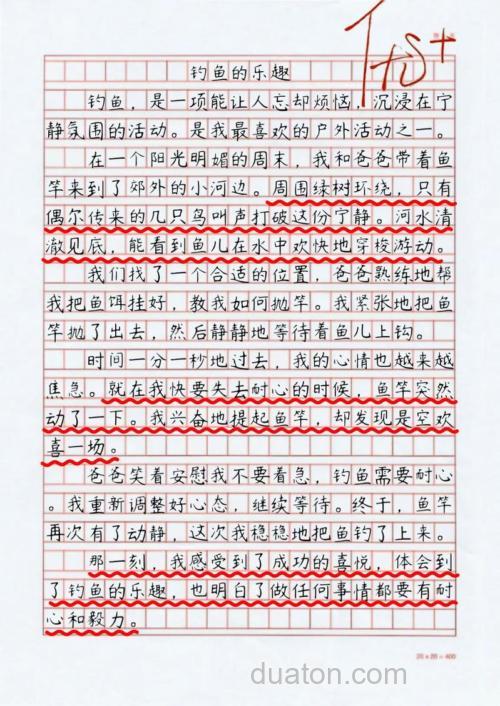 优+
钓鱼的乐趣
钓鱼，是一项能让人忘却烦恼，沉浸在宁
静氛围的活动。是我最喜欢的户外活动之一。
在一个阳光明媚的周末，我和爸爸带着鱼
竿来到了郊外的小河边。周围绿树环绕，只有
偶尔传来的几只鸟叫声打破这份宁静。河水清
澈见底，能看到鱼儿在水中欢快地穿梭游动。
我们找了一个合适的位置，爸爸熟练地帮
我把鱼饵挂好，教我如何抛竿。我紧张地把鱼
竿抛了出去，然后静静地等待着鱼儿上钩。
时间一分一秒地过去，我的心情也越来越
焦急。就在我快要失去耐心的时候，鱼竿突然
动了一下。我兴奋地提起鱼竿，却发现是空欢
喜一场。
爸爸笑着安慰我不要着急，钓鱼需要耐心
。我重新调整好心态，继续等待。终于，鱼竿
再次有了动静，这次我稳稳地把鱼钓了上来。
那一刻，我感受到了成功的喜悦，体会到
了钓鱼的乐趣，也明白了做任何事情都要有耐
心和毅力。
20×20=400
duaton.com